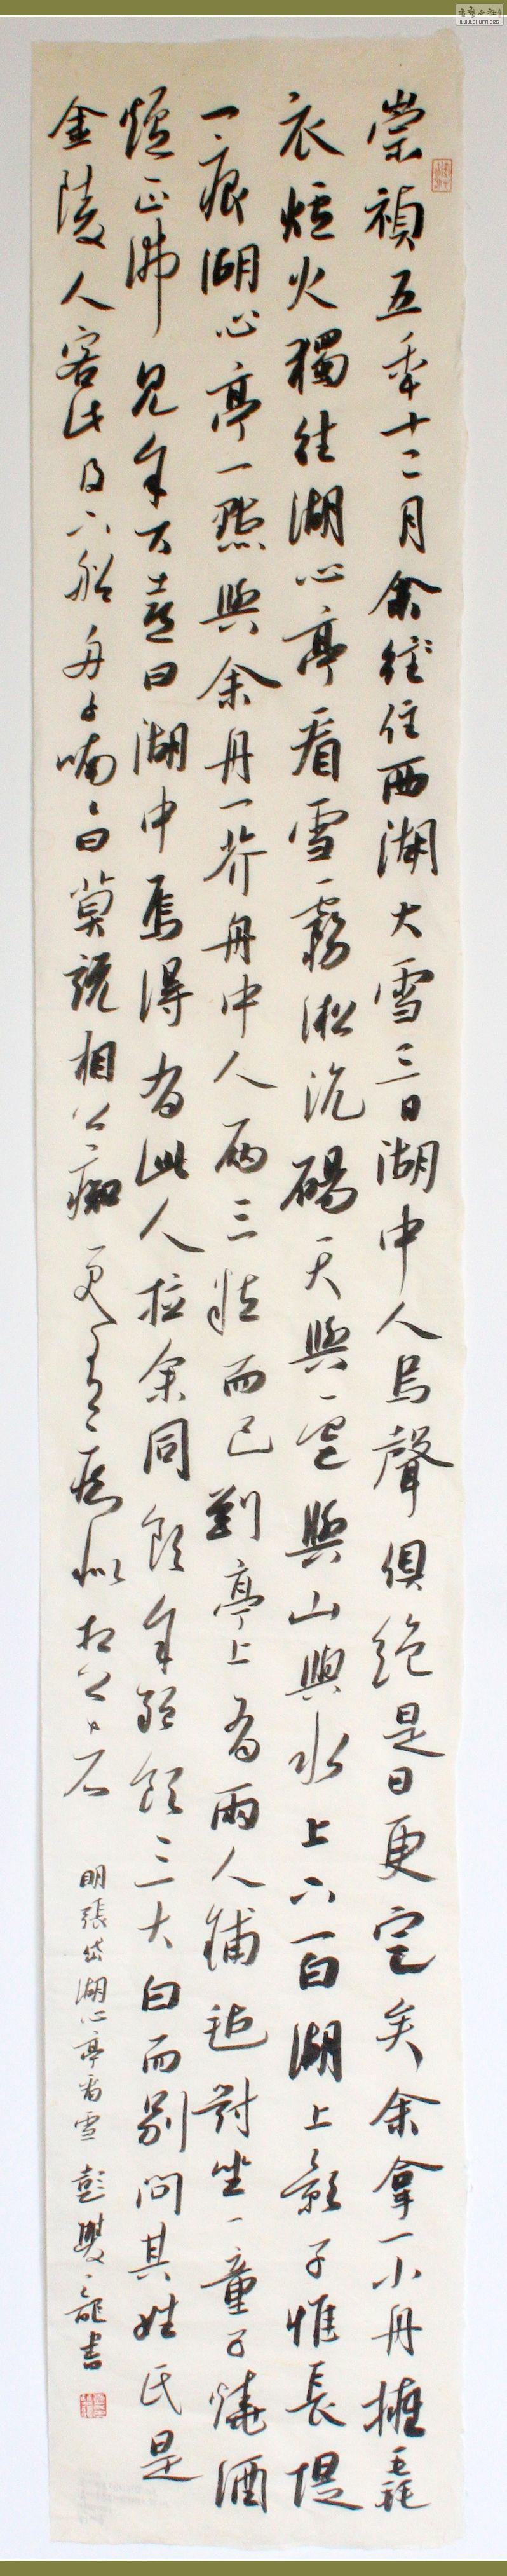 崇禎五年十二月余住西湖大雪三日湖中人鳥聲俱絕是日更定矣余拿一小舟擁毳
衣爐火獨往湖心亭看雪霧淞沆碭天與雲與山與水上下一白湖上影子惟長堤
一痕湖心亭一點與余舟一芥舟中人兩三粒而已到亭上有兩人鋪氈對坐一童子燒酒
爐正沸見余大喜曰湖中焉得有此人拉余同飲余強飲三大白而別問其姓氏是
金陵人客此及下船舟子喃喃曰莫說相公癡更有癡似相公者
明張岱湖心亭看雪 彭雙龍書
WWW.SHUFA.ORG